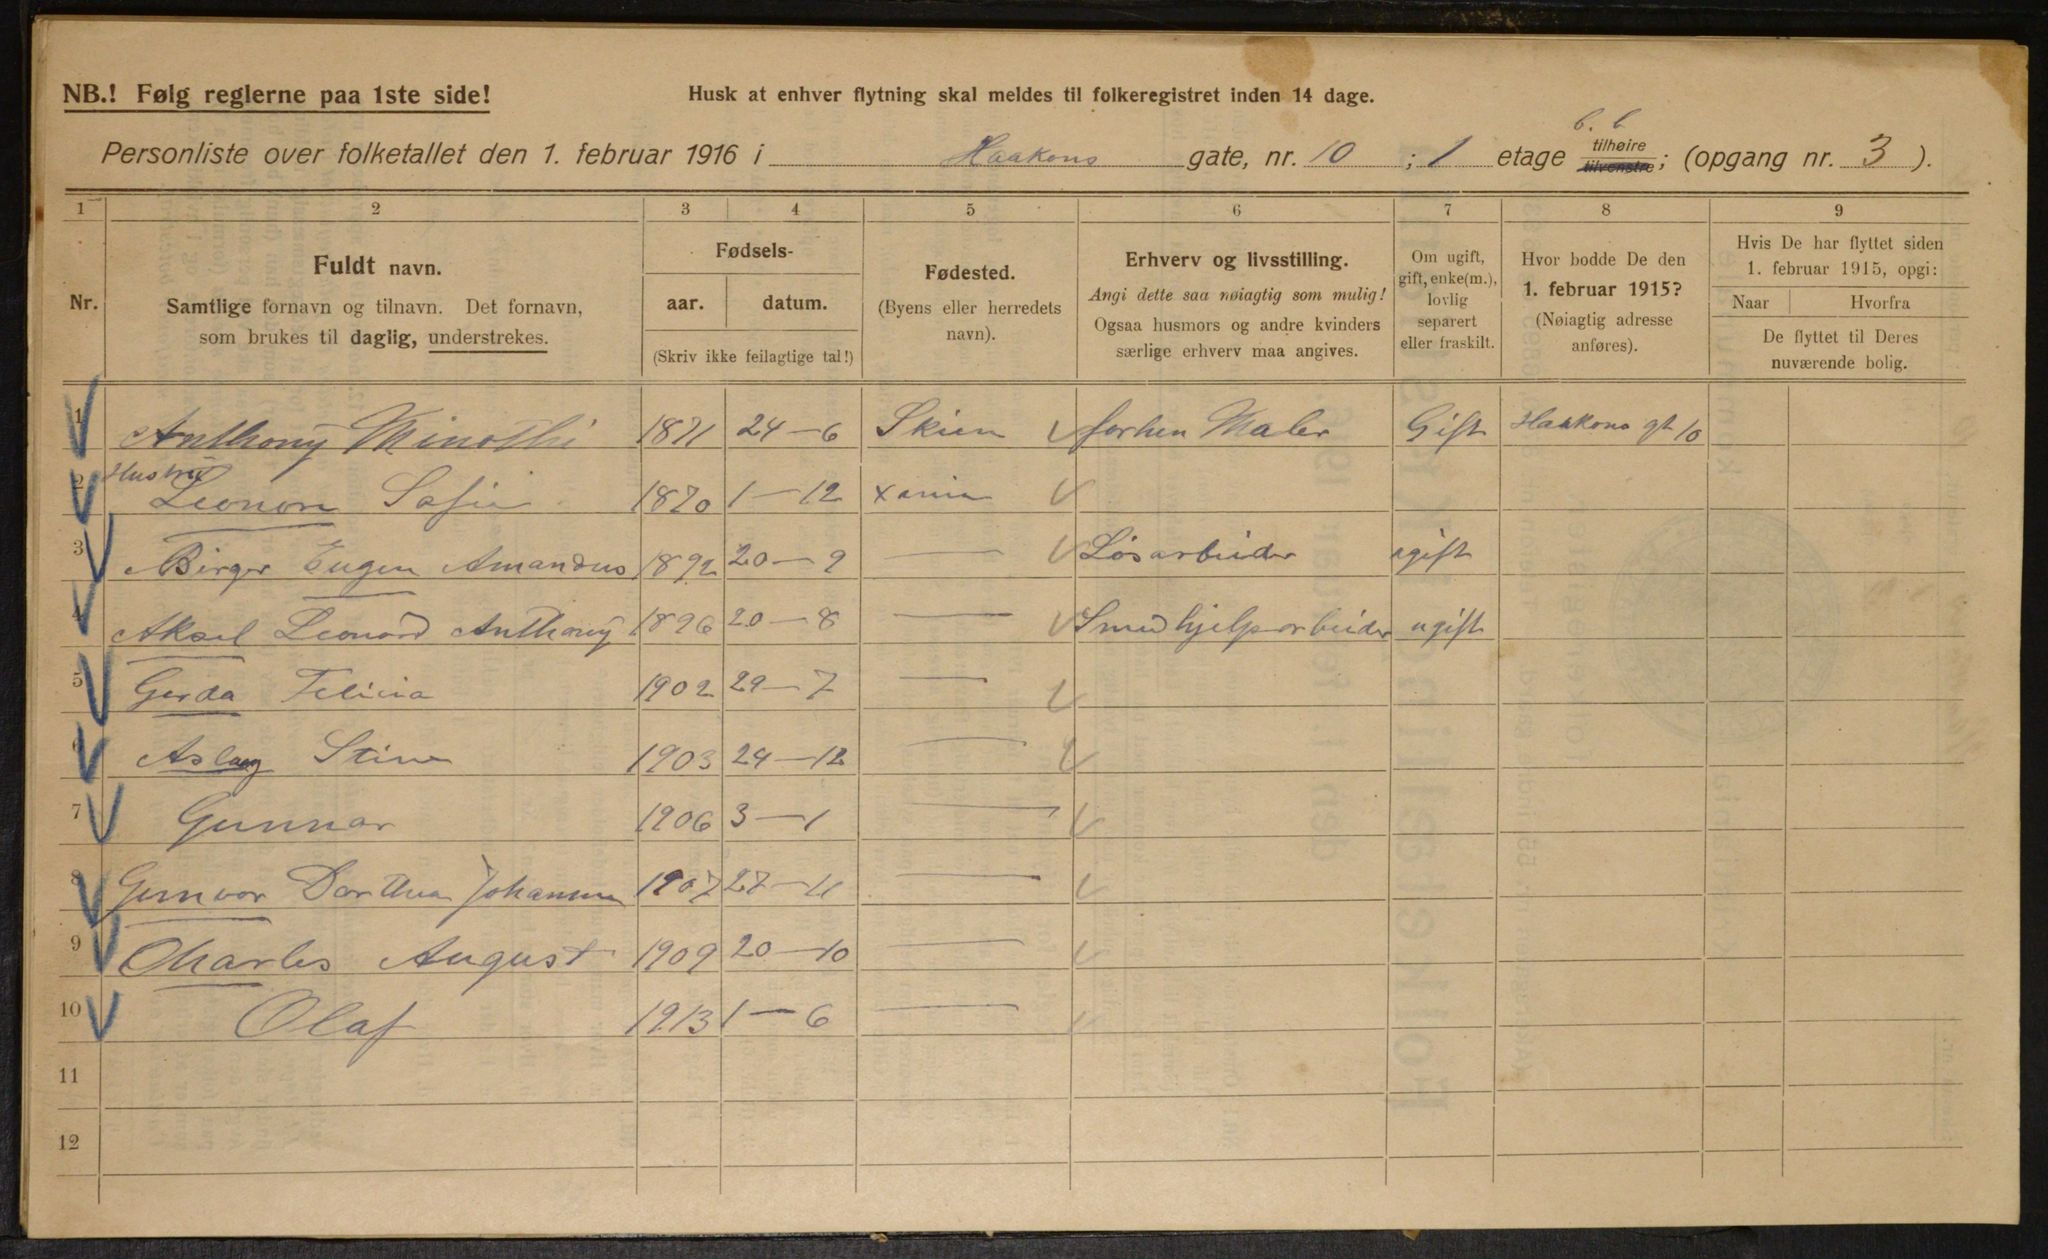 NB.! Følg reglerne paa 1ste side!
Husk at enhver flytning skal meldes til folkeregistret inden 14 dage.
b. b
Personliste over folketallet den 1. februar 1916 i Haakons gate, nr. 10 ; 1 etage tilhøire tilvenstre; (opgang nr. 3 ).
1 2 3 4 5 6 7 8 9
Nr.
Fuldt navn.
Samtlige fornavn og tilnavn. Det fornavn,
som brukes til daglig, understrekes.
Fødsels-
aar. datum.
(Skriv ikke feilagtige tal!)
Fødested.
(Byens eller herredets
navn).
Erhverv og livsstilling.
Angi dette saa nøiagtig som mulig!
Ogsaa husmors og andre kvinders
særlige erhverv maa angives.
Om ugift,
gift, enke(m.),
lovlig
separert
eller fraskilt.
Hvor bodde De den
1. februar 1915?
(Nøiagtig adresse
anføres).
Hvis De har flyttet siden
1. februar 1915, opgi:
Naar Hvorfra
De flyttet til Deres
nuværende bolig.
1 Anthony Minothi 1871 24-6 Skien forhen Maler Gift Haakons gt 10
Hustru
2 Leonore Sofie 1870 1-12 Xania
3 Birger Eugen Amandus 1892 20-9 — Løsarbeider ugift
4 Aksel Leonard Anthony 1896 20-8 — Smed hjelpsarbeider ugift
5 Gerda Felicia 1902 29-7 —
6 Aslaug Stine 1903 24-12 —
7 Gunnar 1906 3-1 —
8 Gunvor Dorthea Johanna 1907 27-11 —
9 Charles August 1909 20-10 —
10 Olaf 1913 1-6 —
11
12